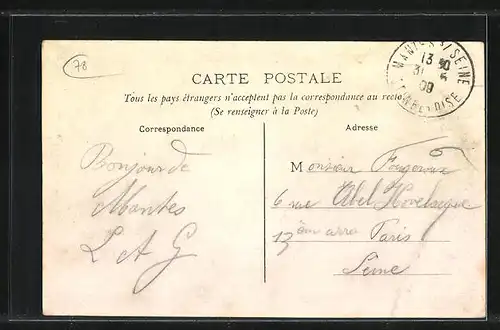 78
MANTES S/SEINE
13 30
31 5
09
SEINE-ET-OISE
CARTE POSTALE
Tous les pays étrangers n'acceptent pas la correspondance au recto
(Se renseigner à la Poste)
Correspondance
Adresse
Bonjour de
Mantes
L A G
Monsieur
6 rue Abel Hovelacque
13 ème arro Paris
Seine